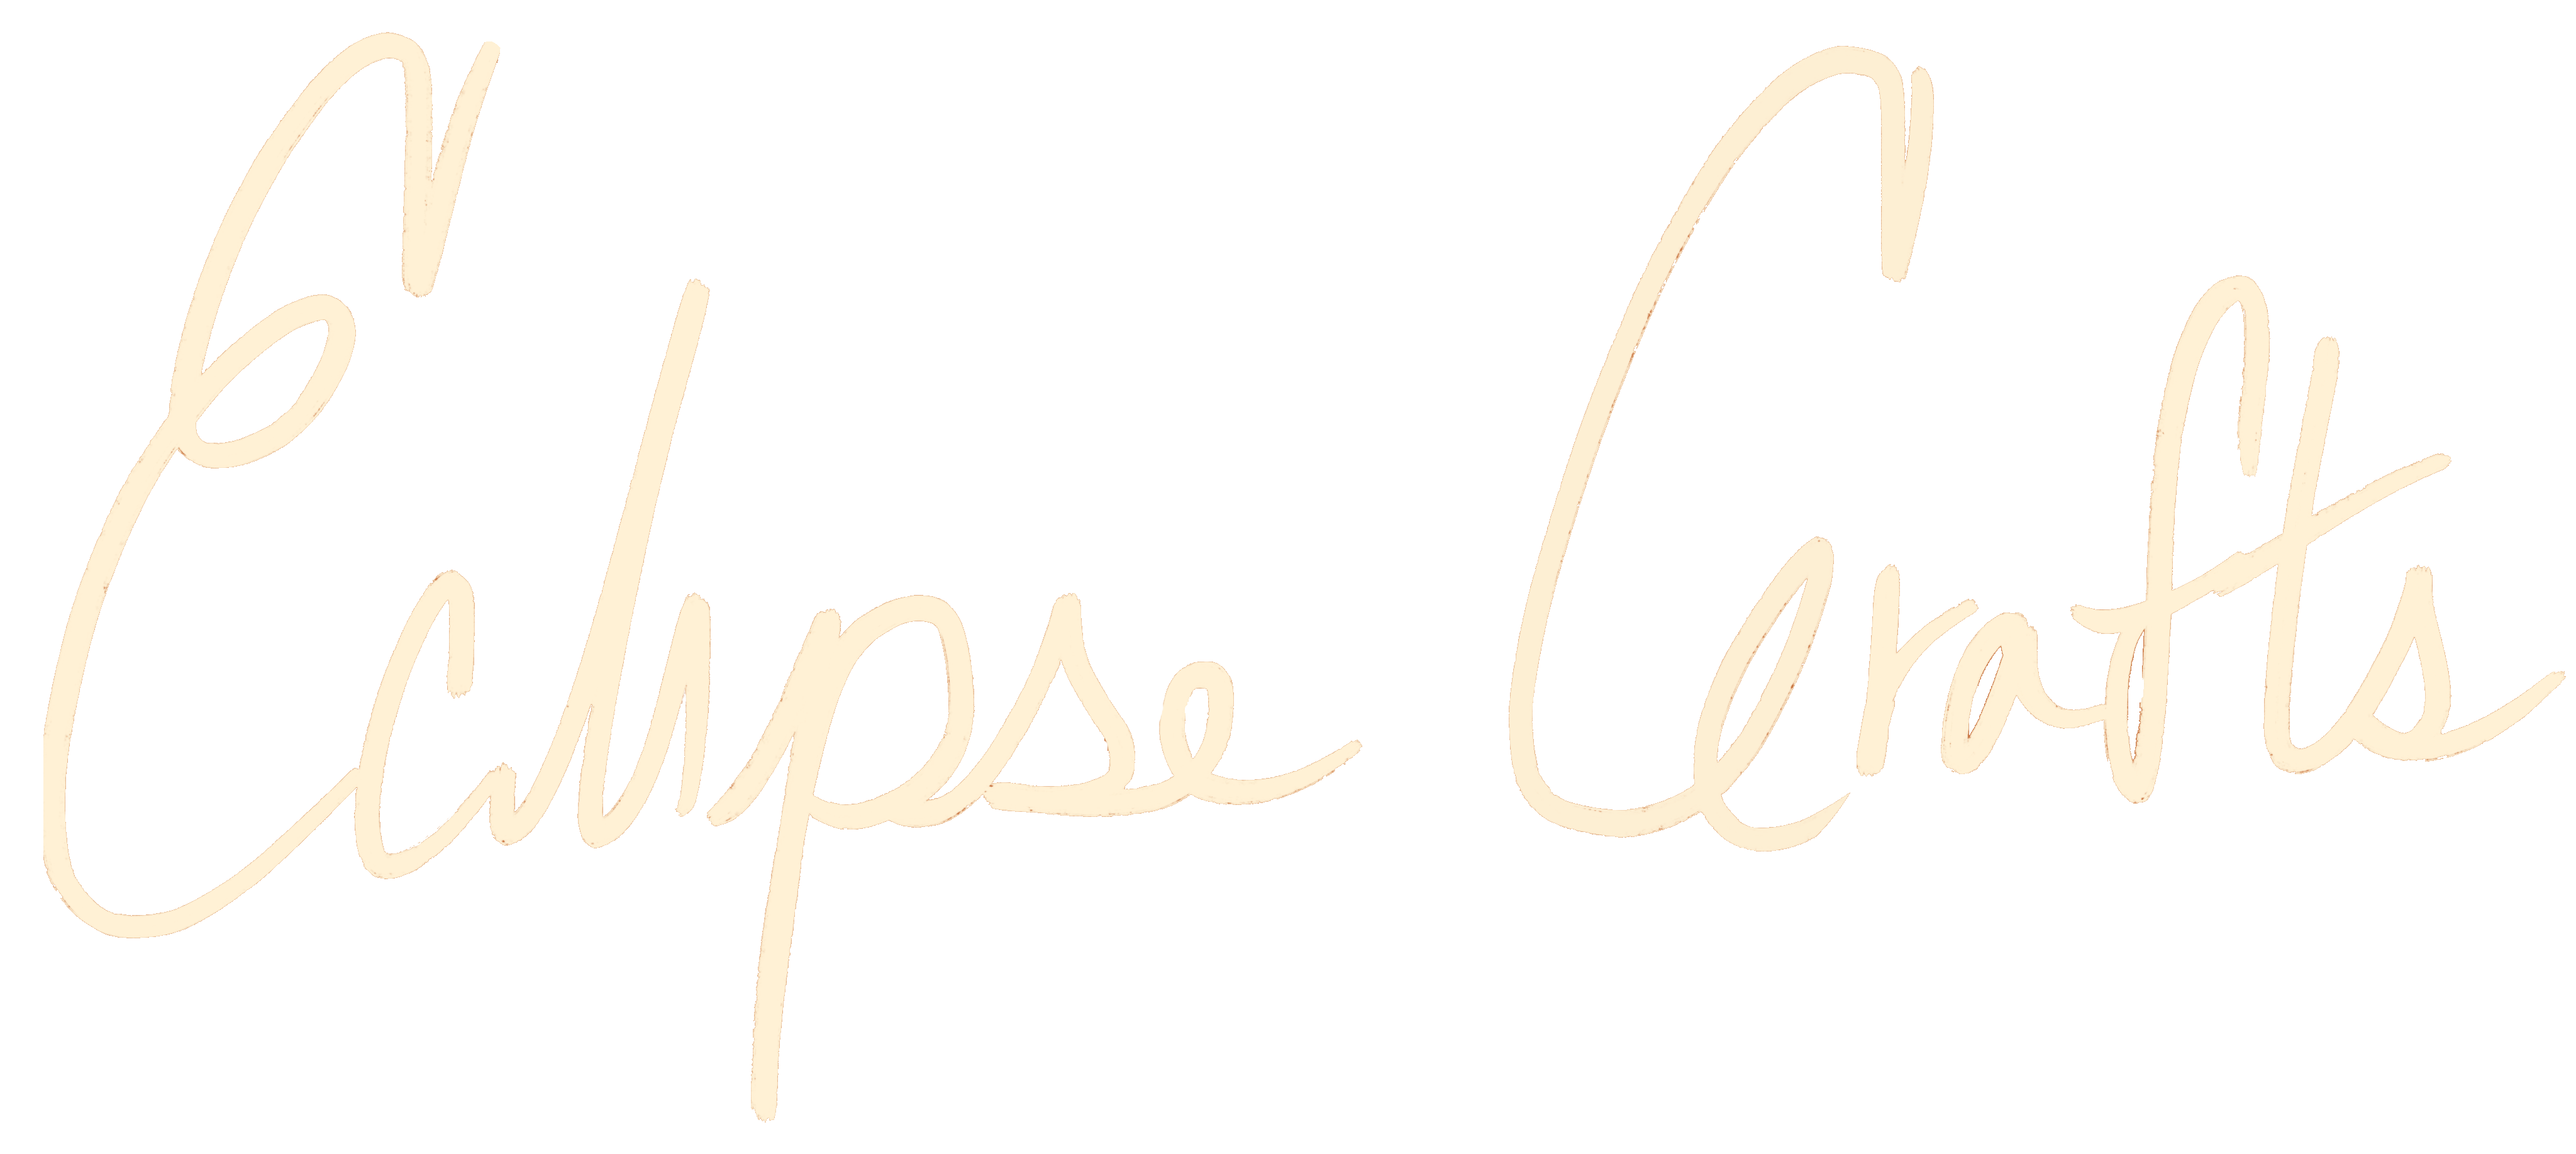 Eclipse Crafts